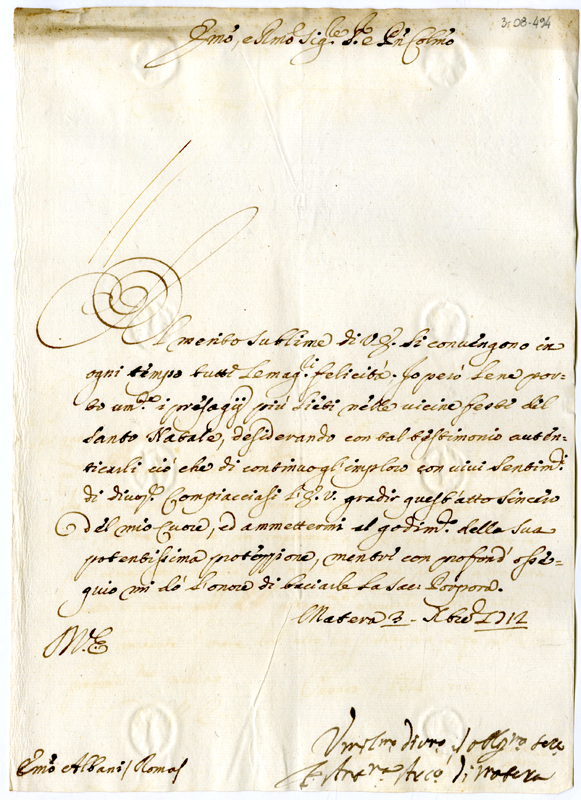 3-08-494
Emo, e Rmo Sig.re S.re e Pn Colmo
Al merito sublime di V.E. si convengono in
ogni tempo tutte le mag.ri felicità. Io però le ne por-
to um.te i presagij più lieti nelle vicine feste del
Santo Natale, desiderando con tal testimonio auten-
ticarli ciò che di continuo gl'imploro con vivi sentim.ti
di divoz.e Compiacciasi l'E.V. gradir quest'atto sincero
del mio Cuore, ed ammettermi al godim.to della sua
potentissima protezzione, mentre con profond'osse-
quio mi dò l'onore di baciarle la Sac: Porpora.
Matera 3 Xbre 1712
Emo Albani / Roma /
Umilmo divmo ed obligmo ser.e
Arciv.o di Matera